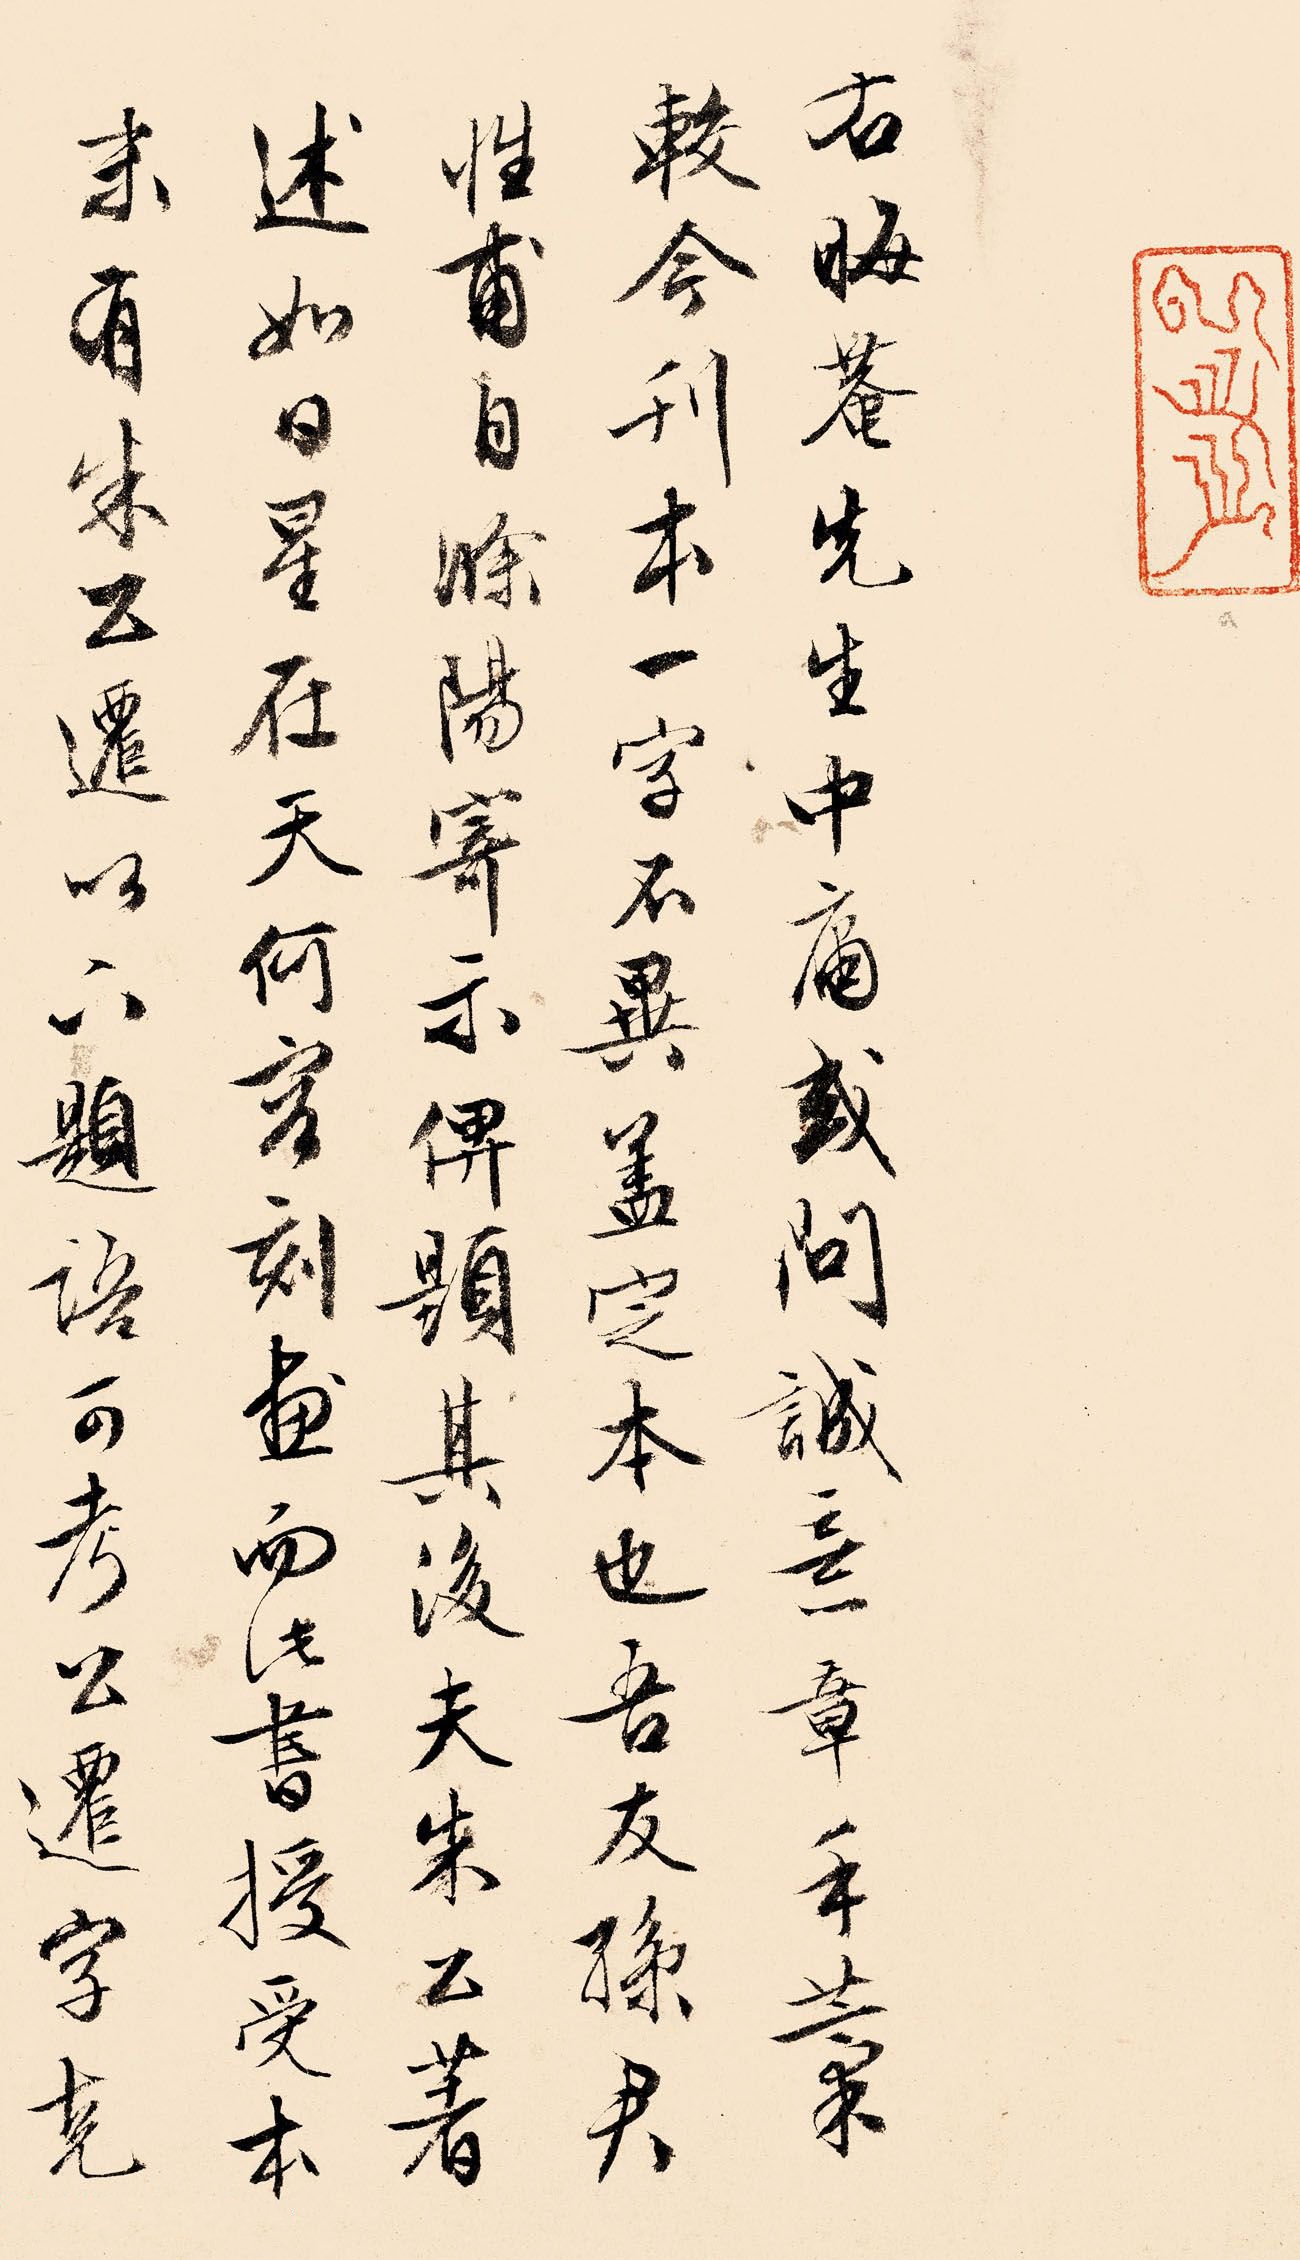 右晦菴先生中庸或問誠意章手藁
較今刊本一字不異蓋定本也吾友孫君
性甫自滁陽寄示俾題其後夫朱公著
述如日星在天何容刻畫而此書授受本
末有朱公遷以下題語可考公遷字克